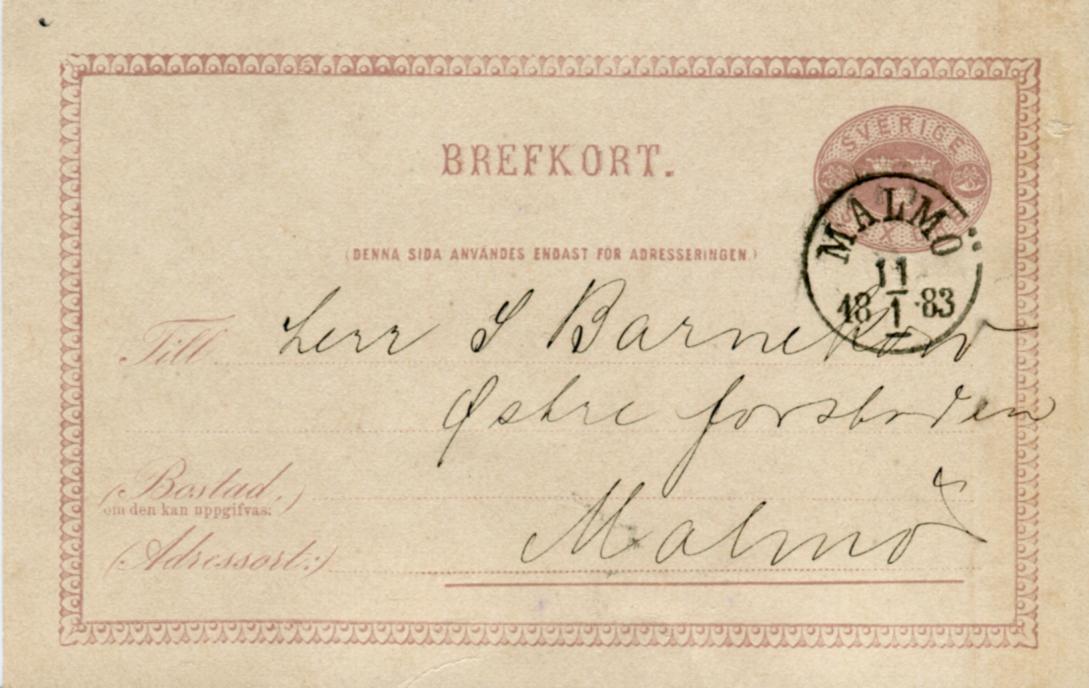 BREFKORT.
SVERIGE
MALMÖ
11
1
18 83
(DENNA SIDA ANVÄNDES ENDAST FÖR ADRESSERINGEN.)
Till Herr S Barnekow
Østre forstaden
(Bostad.)
om den kan uppgifvas:
(Adressort:) Malmö